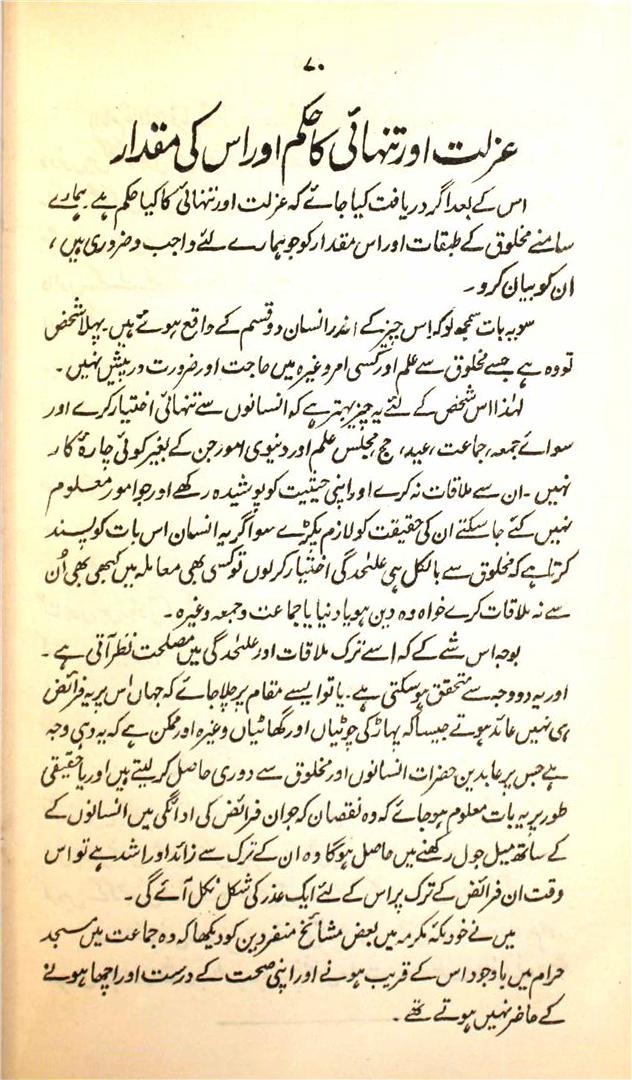 ۷۰
عزلت اور تنہائی کا حکم اور اس کی مقدار
اس کے بعد اگر دریافت کیا جائے کہ عزلت اور تنہائی کا کیا حکم ہے ہمارے
سامنے مخلوق کے طبقات اور اس مقدار کو جو ہمارے لئے واجب و ضروری ہیں،
ان کو بیان کرو۔
سو یہ بات سمجھ لو کہ اس چیز کے اندر انسان دو قسم کے واقع ہوئے ہیں۔ پہلا شخص
تو وہ ہے جسے مخلوق سے علم اور کسی امر وغیرہ میں حاجت اور ضرورت درپیش نہیں۔
لہٰذا اس شخص کے لئے یہ چیز بہتر ہے کہ انسانوں سے تنہائی اختیار کرے اور
سوائے جمعہ، جماعت، عید، حج، مجلس علم اور دنیوی امور جن کے بغیر کوئی چارۂ کار
نہیں۔ ان سے ملاقات نہ کرے اور اپنی حیثیت کو پوشیدہ رکھے اور جو امور معلوم
نہیں کئے جا سکتے ان کی حقیقت کو لازم پکڑے سو اگر یہ انسان اس بات کو پسند
کرتا ہے کہ مخلوق سے بالکل ہی علیٰحدگی اختیار کر لوں تو کسی بھی معاملہ میں کبھی بھی اُن
سے نہ ملاقات کرے خواہ وہ دین ہو یا دنیا یا جماعت و جمعہ وغیرہ۔
بوجہ اس شے کے کہ اسے ترک ملاقات اور علیٰحدگی میں مصلحت نظر آتی ہے۔
اور یہ دو وجہ سے متحقق ہو سکتی ہے۔ یا تو ایسے مقام پر چلا جائے کہ جہاں اس پر یہ فرائض
ہی نہیں عائد ہوتے جیسا کہ پہاڑ کی چوٹیاں اور گھاٹیاں وغیرہ اور ممکن ہے کہ یہ وہی وجہ
ہے جس پر عابدین حضرات انسانوں اور مخلوق سے دوری حاصل کر لیتے ہیں اور یا حقیقی
طور پر یہ بات معلوم ہو جائے کہ وہ نقصان کہ جو ان فرائض کی ادائگی میں انسانوں کے
کے ساتھ میل جول رکھنے میں حاصل ہوگا وہ ان کے ترک سے زائد اور اشد ہے تو اس
وقت ان فرائض کے ترک پر اس کے لئے ایک عذر کی شکل نکل آئے گی۔
میں نے خود مکہ مکرمہ میں بعض مشائخ منفردین کو دیکھا کہ وہ جماعت میں مسجد
حرام میں باوجود اس کے قریب ہونے اور اپنی صحت کے درست اور اچھا ہونے
کے حاضر نہیں ہوتے تھے۔